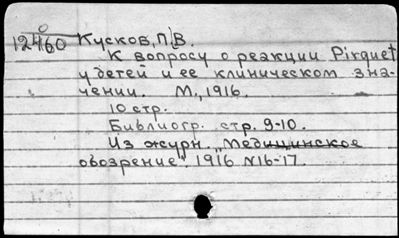 12460 Кусков, П.В.
К вопросу о реакции Pirquet
у детей и ее клиническом зна-
чении. М., 1916.
10 стр.
Библиогр. стр. 9-10.
Из журн. "Медицинское
обозрение". 1916 N16-17.